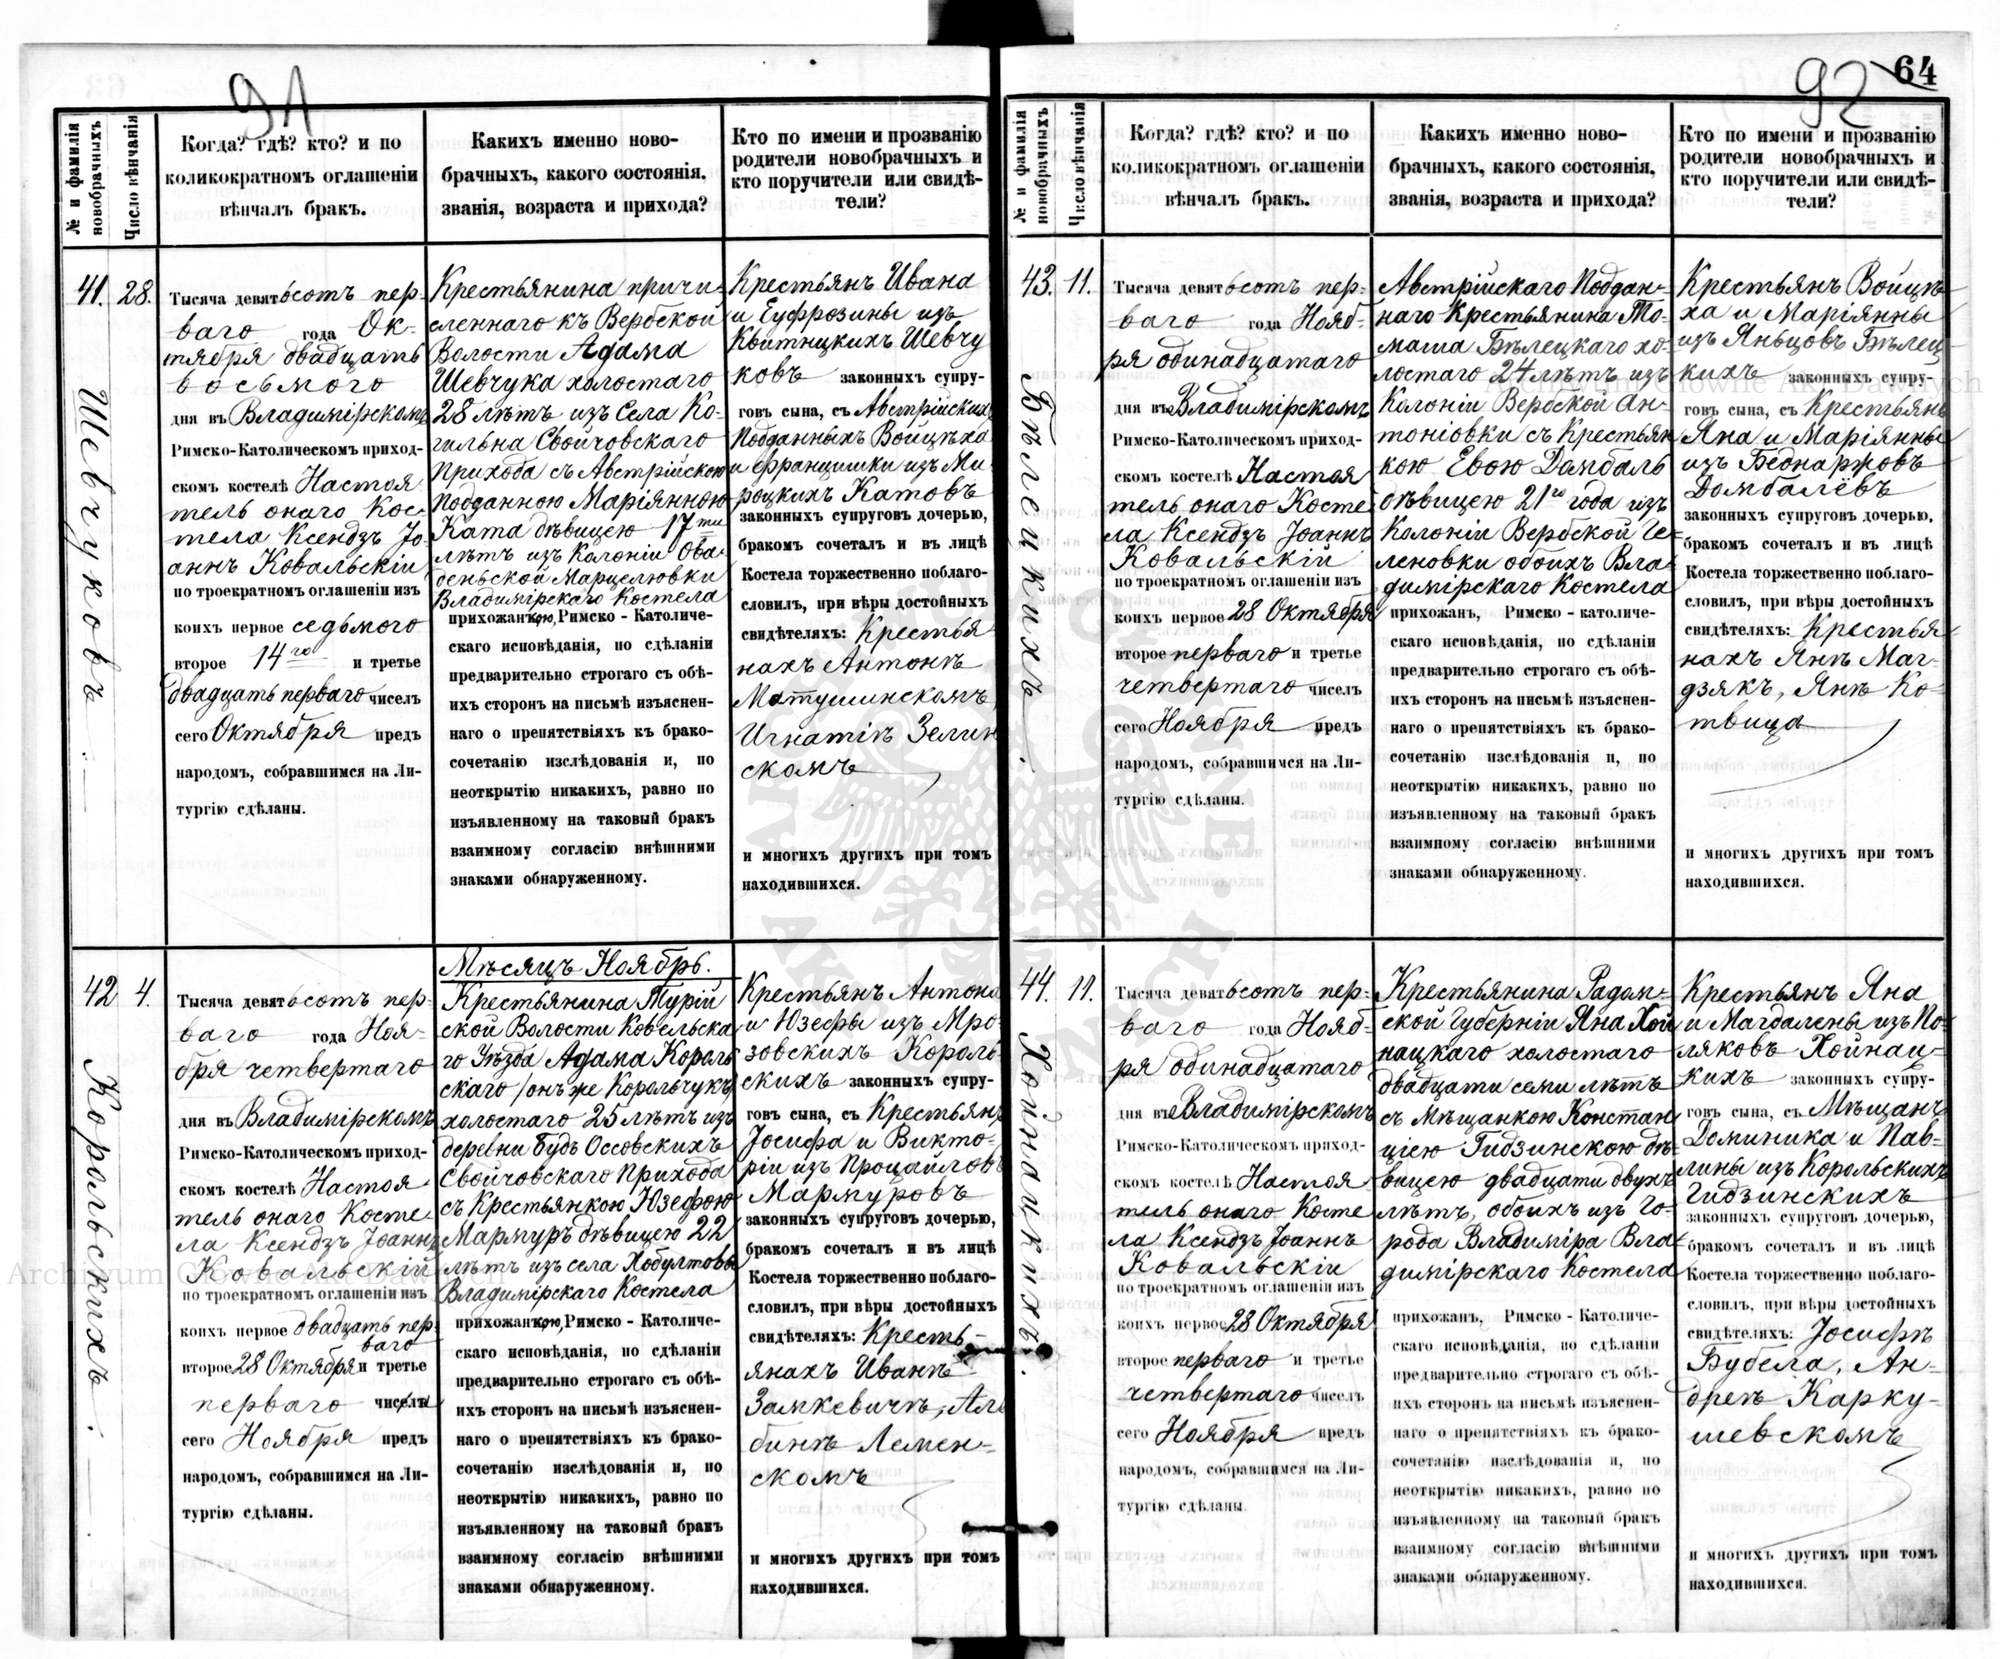 91
№ и фамилія новобрачныхъ
Число вѣнчанія
Когда? гдѣ? кто? и по
коликократномъ оглашеніи
вѣнчалъ бракъ.
Какихъ именно ново-
брачныхъ, какого состоянія,
званія, возраста и прихода?
Кто по имени и прозванію
родители новобрачныхъ и
кто поручители или свидѣ-
тели?
41.
Шевчуковъ.
28.
Тысяча девятьсотъ пер-
ваго года Ок-
тября двадцать
восьмого
дня въ Владимірскомъ
Римско-Католическомъ приход-
скомъ костелѣ Настоя
тель онаго Кос-
тела Ксендзъ Іо-
аннъ Ковальскій
по троекратномъ оглашеніи изъ
коихъ первое седьмого
второе 14го и третье
двадцать перваго чиселъ
сего Октября предъ
народомъ, собравшимся на Ли-
тургію сдѣланы.
Крестьянина причи-
сленнаго къ Вербской
Волости Адама
Шевчука холостаго
28 лѣтъ изъ Села Ко-
гильна Свойчовскаго
Прихода съ Австрійскою
Подданною Маріянною
Ката дѣвицею 17ти
лѣтъ изъ Колоніи Ова-
деньской Марцелювки
Владимірскаго Костела
прихожанкою, Римско-Католиче-
скаго исповѣданія, по сдѣланіи
предварительно строгаго съ обѣ-
ихъ сторонъ на письмѣ изъяснен-
наго о препятствіяхъ къ брако-
сочетанію изслѣдованія и, по
неоткрытію никакихъ, равно по
изъявленному на таковый бракъ
взаимному согласію внѣшними
знаками обнаруженному.
Крестьянъ Ивана
и Еуфрозины изъ
Квитницкихъ Шевчу
ковъ законныхъ супру-
говъ сына, съ Австрійскихъ
Подданныхъ Войцѣха
и Францишки изъ Ми-
роцкихъ Катовъ
законныхъ супруговъ дочерью,
бракомъ сочеталъ и въ лицѣ
Костела торжественно поблаго-
словилъ, при вѣры достойныхъ
свидѣтеляхъ: Крестья
нахъ Антонѣ
Матушинскомъ,
Игнатіѣ Зелин
скомъ
и многихъ другихъ при томъ
находившихся.
42
Корольскихъ.
4.
Тысяча девятьсотъ пер-
ваго года Ноя-
бря четвертаго
дня въ Владимірскомъ
Римско-Католическомъ приход-
скомъ костелѣ Настоя
тель онаго Косте-
ла Ксендзъ Іоаннъ
Ковальскій
по троекратномъ оглашеніи изъ
коихъ первое двадцать пер-
ваго
второе 28 Октября и третье
перваго числа
сего Ноября предъ
народомъ, собравшимся на Ли-
тургію сдѣланы.
Мѣсяцъ Ноябрь.
Крестьянина Турій
ской Волости Ковельска
го Уѣзда Адама Король
скаго /онъ же Корольчукъ/
холостаго 25 лѣтъ изъ
деревни Будъ Оссовскихъ
Свойчовскаго Прихода
съ Крестьянкою Юзефою
Мармуръ дѣвицею 22
лѣтъ изъ села Хобултовы
Владимірскаго Костела
прихожанкою, Римско-Католиче-
скаго исповѣданія, по сдѣланіи
предварительно строгаго съ обѣ-
ихъ сторонъ на письмѣ изъяснен-
наго о препятствіяхъ къ брако-
сочетанію изслѣдованія и, по
неоткрытію никакихъ, равно по
изъявленному на таковый бракъ
взаимному согласію внѣшними
знаками обнаруженному.
Крестьянъ Антона
и Юзефы изъ Мро-
зовскихъ Король-
скихъ законныхъ супру-
говъ сына, съ Крестьянъ
Іосифа и Викто-
ріи изъ Процайловъ
Мармуровъ
законныхъ супруговъ дочерью,
бракомъ сочеталъ и въ лицѣ
Костела торжественно поблаго-
словилъ, при вѣры достойныхъ
свидѣтеляхъ: Кресть-
янахъ Иванѣ
Замкевичѣ, Аль
бинѣ Лемен-
скомъ
и многихъ другихъ при томъ
находившихся.
92
64
№ и фамилія новобрачныхъ
Число вѣнчанія
Когда? гдѣ? кто? и по
коликократномъ оглашеніи
вѣнчалъ бракъ.
Какихъ именно ново-
брачныхъ, какого состоянія,
званія, возраста и прихода?
Кто по имени и прозванію
родители новобрачныхъ и
кто поручители или свидѣ-
тели?
43.
Бѣлецкихъ.
11.
Тысяча девятьсотъ пер-
ваго года Нояб-
ря одинадцатаго
дня въ Владимірскомъ
Римско-Католическомъ приход-
скомъ костелѣ Настоя
тель онаго Косте
ла Ксендзъ Іоаннъ
Ковальскій
по троекратномъ оглашеніи изъ
коихъ первое 28 Октября
второе перваго и третье
четвертаго чиселъ
сего Ноября предъ
народомъ, собравшимся на Ли-
тургію сдѣланы.
Австрійскаго Поддан-
наго Крестьянина То-
маша Бѣлецкаго хо-
лостаго 24 лѣтъ изъ
Колоніи Вербской Ан-
тоніовки съ Крестьян
кою Евою Домбаль
дѣвицею 21го года изъ
Колоніи Вербской Ге-
леновки обоихъ Вла-
димірскаго Костела
прихожанъ, Римско-католиче-
скаго исповѣданія, по сдѣланіи
предварительно строгаго съ обѣ-
ихъ сторонъ на письмѣ изъяснен-
наго о препятствіяхъ къ брако-
сочетанію изслѣдованія и, по
неоткрытію никакихъ, равно по
изъявленному на таковый бракъ
взаимному согласію внѣшними
знаками обнаруженному.
Крестьянъ Войцѣ-
ха и Маріянны
изъ Яньцовъ Бѣлец-
кихъ законныхъ супру-
говъ сына, съ Крестьянъ
Яна и Маріянны
изъ Беднаржовъ
Домбалёвъ
законныхъ супруговъ дочерью,
бракомъ сочеталъ и въ лицѣ
Костела торжественно поблаго-
словилъ, при вѣры достойныхъ
свидѣтеляхъ: Крестья-
нахъ Янѣ Маг-
дзякъ, Янѣ Ко-
твица
и многихъ другихъ при томъ
находившихся.
44.
Хойнацкихъ.
11.
Тысяча девятьсотъ пер-
ваго года Нояб-
ря одинадцатаго
дня въ Владимірскомъ
Римско-Католическомъ приход-
скомъ костелѣ Настоя
тель онаго Косте
ла Ксендзъ Іоаннъ
Ковальскій
по троекратномъ оглашеніи изъ
коихъ первое 28 Октября
второе перваго и третье
четвертаго чиселъ
сего Ноября предъ
народомъ, собравшимся на Ли-
тургію сдѣланы.
Крестьянина Радом-
ской Губерніи Яна Хой
нацкаго холостаго
двадцати семи лѣтъ
съ Мѣщанкою Констан
ціею Гидзинскою дѣ-
вицею двадцати двухъ
лѣтъ, обоихъ изъ Го-
рода Владиміра Вла
димірскаго Костела
прихожанъ, Римско-Католиче-
скаго исповѣданія, по сдѣланіи
предварительно строгаго съ обѣ-
ихъ сторонъ на письмѣ изъяснен-
наго о препятствіяхъ къ брако-
сочетанію изслѣдованія и, по
неоткрытію никакихъ, равно по
изъявленному на таковый бракъ
взаимному согласію внѣшними
знаками обнаруженному.
Крестьянъ Яна
и Магдалены изъ По-
ляковъ Хойнац-
кихъ законныхъ супру-
говъ сына, съ Мѣщанъ
Доминика и Пав-
лины изъ Корольскихъ
Гидзинскихъ
законныхъ супруговъ дочерью,
бракомъ сочеталъ и въ лицѣ
Костела торжественно поблаго-
словилъ, при вѣры достойныхъ
свидѣтеляхъ: Іосифѣ
Бубела, Ан-
дреѣ Карку-
шевскомъ
и многихъ другихъ при томъ
находившихся.
Archiwum Główne Akt Dawnych
Archiwum Główne Akt Dawnych